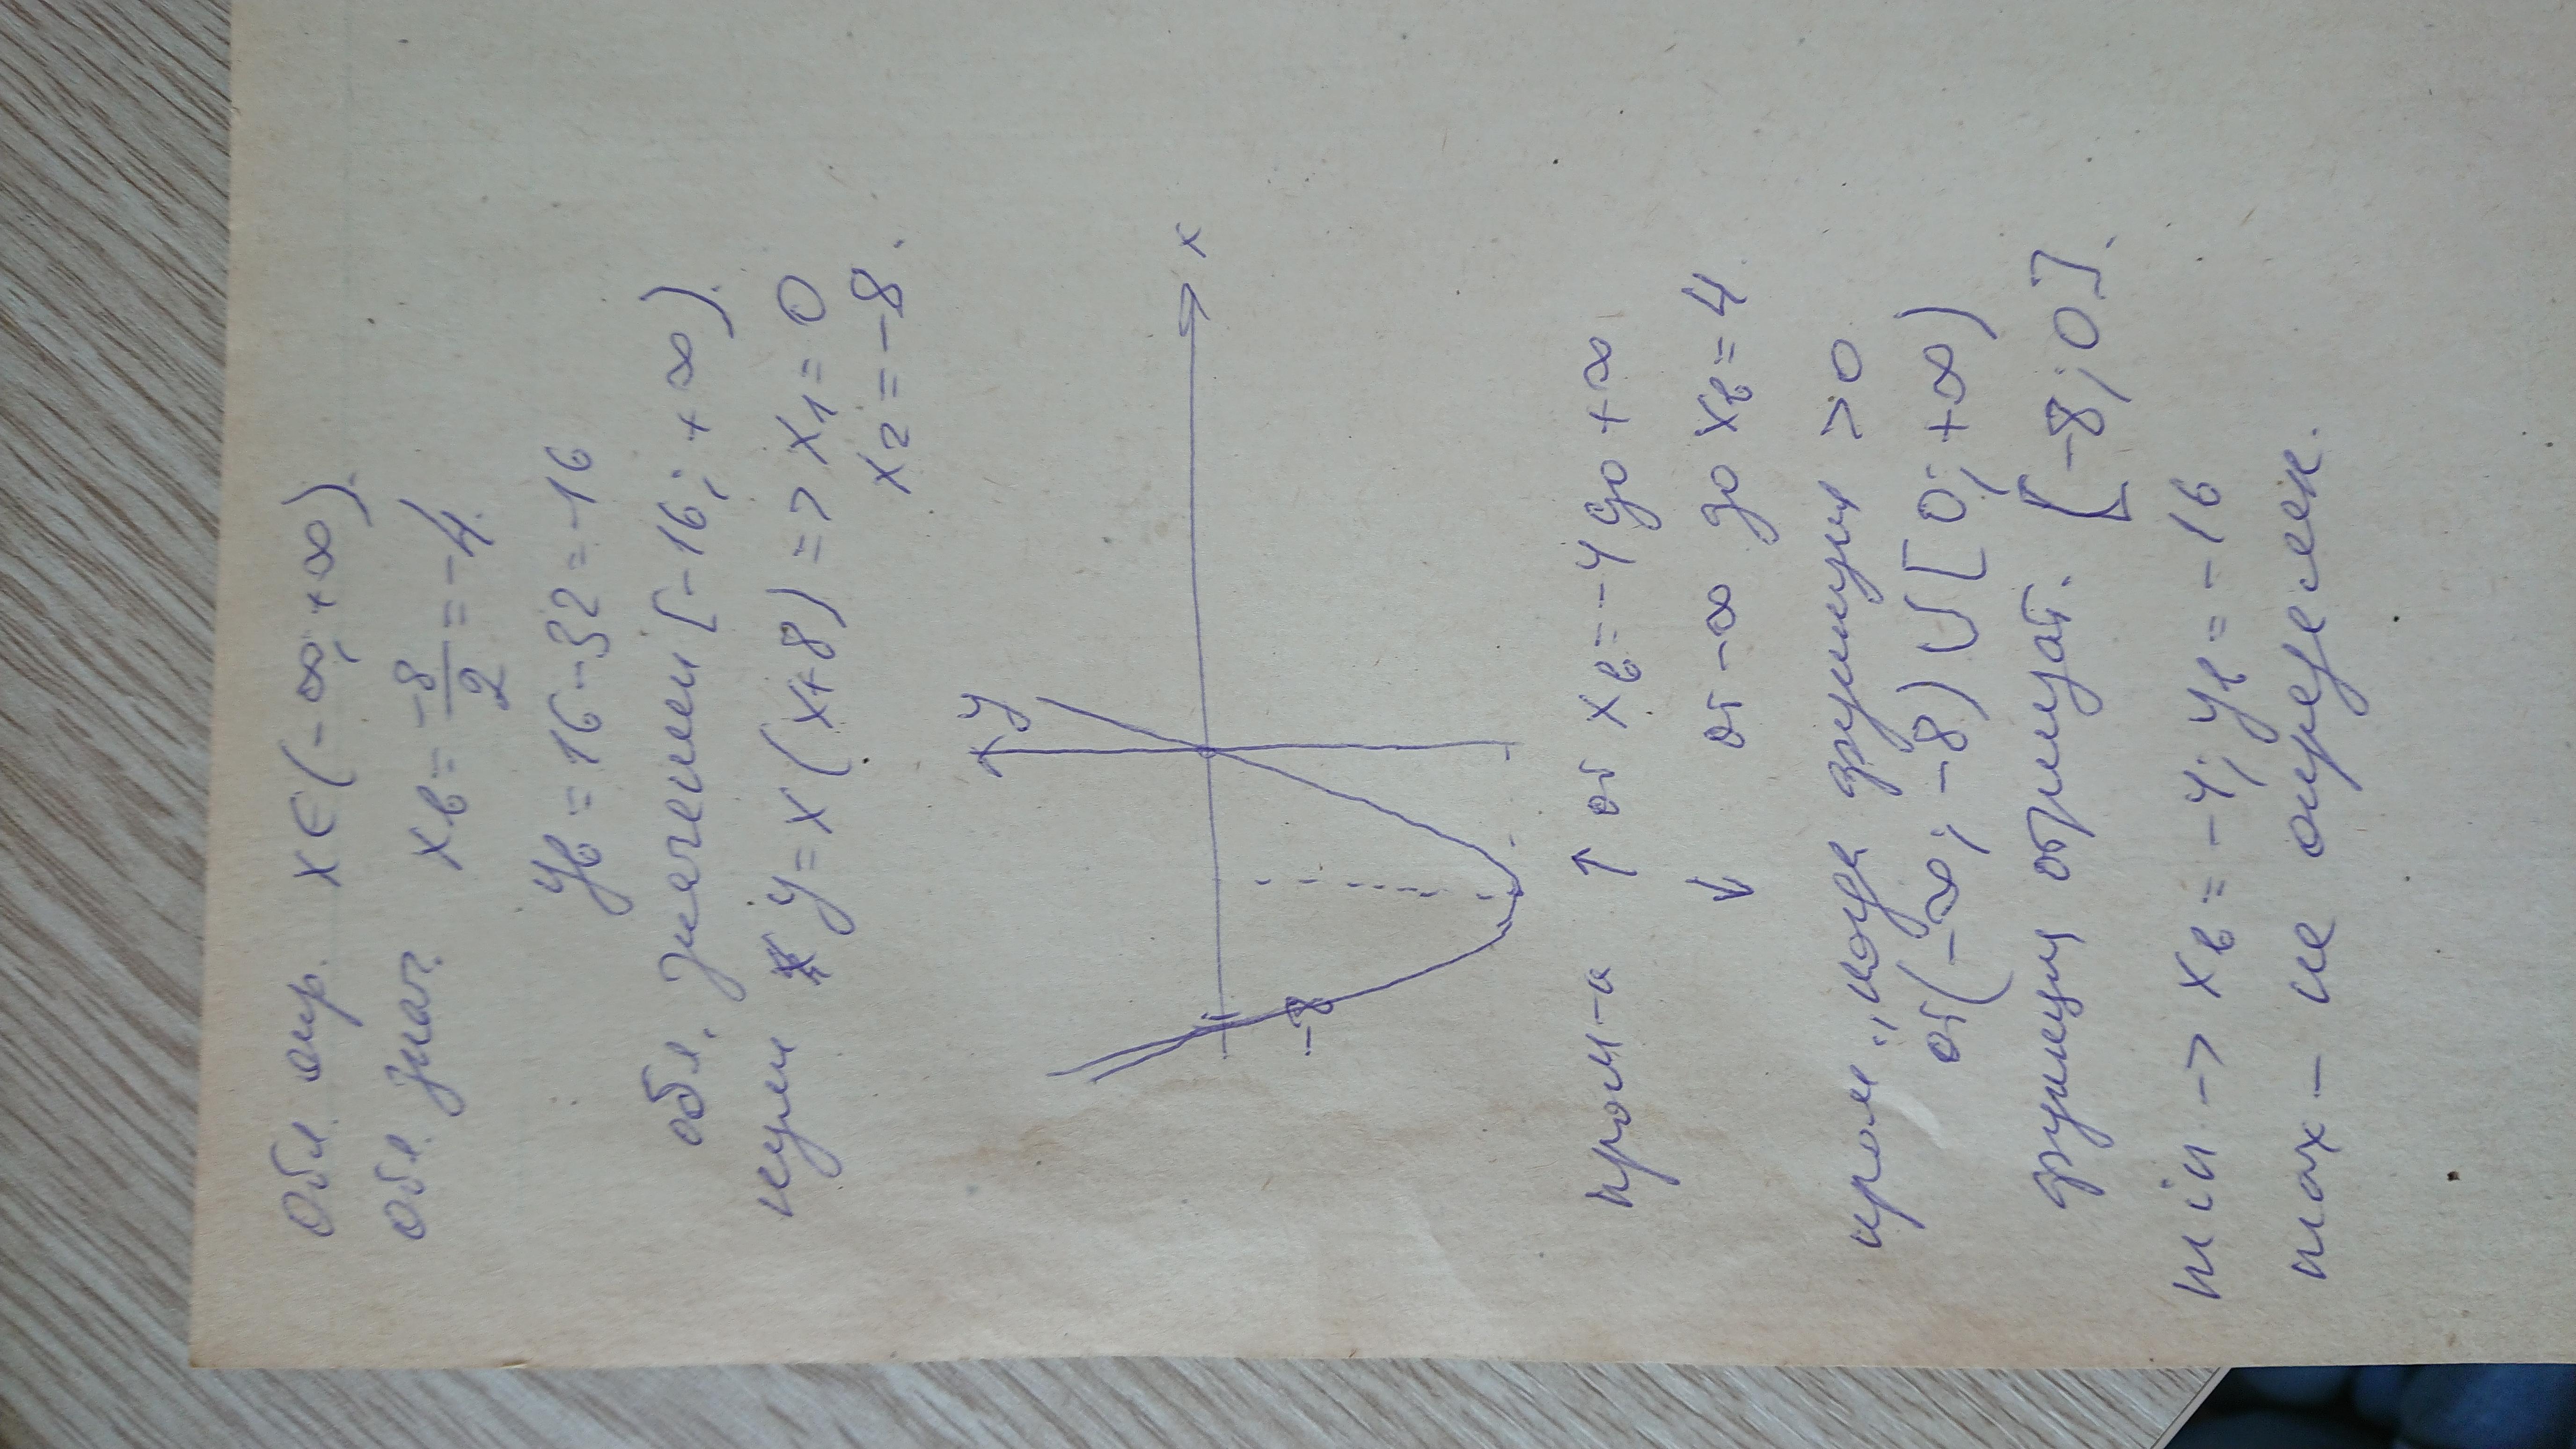 Обл. опр. x∈(-∞; +∞).
Обл. знач. xв = -8/2 = -4.
yв = 16 - 32 = -16
обл. значений [-16; +∞).
нули y = x(x+8) => x1 = 0
x2 = -8.
y
x
-8
пром-и ↑ от xв = -4 до +∞
↓ от -∞ до xв = 4.
пром., когда функция > 0
от (-∞; -8) ∪ [0; +∞)
функция отрицат. [-8; 0].
min -> xв = -4; yв = -16
max - не определен.